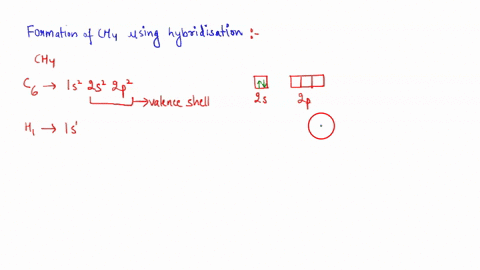 Formation of CH4 using hybridisation :-
CH4
C6 → 1s² 2s² 2p²
2s 2p
valence shell
H1 → 1s¹